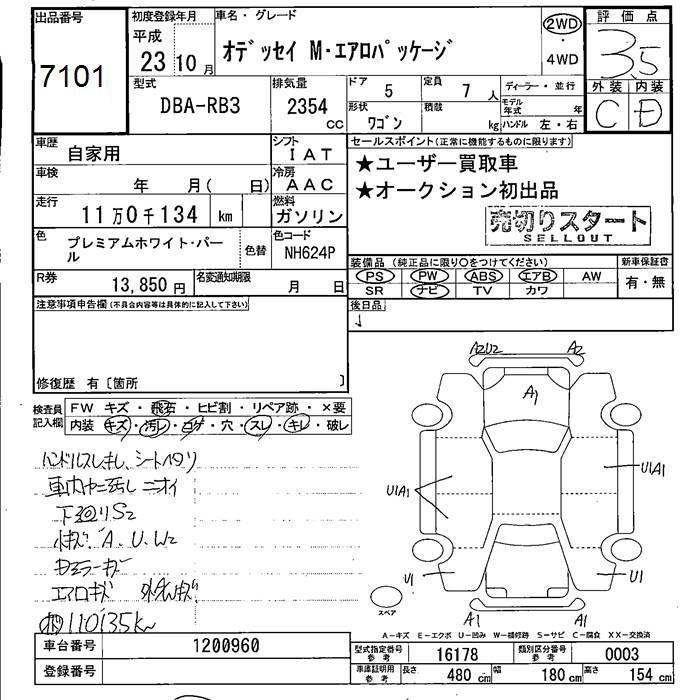 出品番号
7101
初度登録年月
平成
23 10月
車名・グレード
オデッセイ M・エアロパッケージ
2WD
・
4WD
評価点
3.5
外装 内装
C D
型式
DBA-RB3
排気量
2354
CC
ドア 5
定員 7人
形状 ワゴン
積載 kg
ディーラー・並行
モデル年式 年
ハンドル 左・右
車歴
自家用
シフト
IAT
車検
年 月( 日)
冷房
AAC
走行
11万0千134 km
燃料
ガソリン
色
プレミアムホワイト・パール
色替
色コード
NH624P
R券
13,850円
名変通知期限
月 日
セールスポイント(正常に機能するものに限ります)
★ユーザー買取車
★オークション初出品
売切りスタート
SELLOUT
装備品(純正品に限り○をつけてください)
新車保証書
PS PW ABS エアB AW
SR ナビ TV カワ
有・無
注意事項申告欄(不具合内容等は具体的に記入して下さい)
後日品
修復歴 有〔箇所 〕
検査員記入欄
FW キズ・飛石・ヒビ割・リペア跡・×要
内装 キズ・汚レ・コゲ・穴・スレ・キレ・破レ
ハンドルスレキレ、シートヘタリ
車内ヤニ汚レ ニオイ
下廻りS2
小キズ A.U.W2
エアロキズ
110135km
A2U2 A2
A1
U1A1
U1A1
U1 U1
A1 A1
スペア
A-キズ E-エクボ U-凹み W-補修跡 S-サビ C-腐食 XX-交換済
車台番号
1200960
登録番号
型式指定番号参考
16178
類別区分番号参考
0003
車庫証明用参考
長さ 480 cm
幅 180 cm
高さ 154 cm